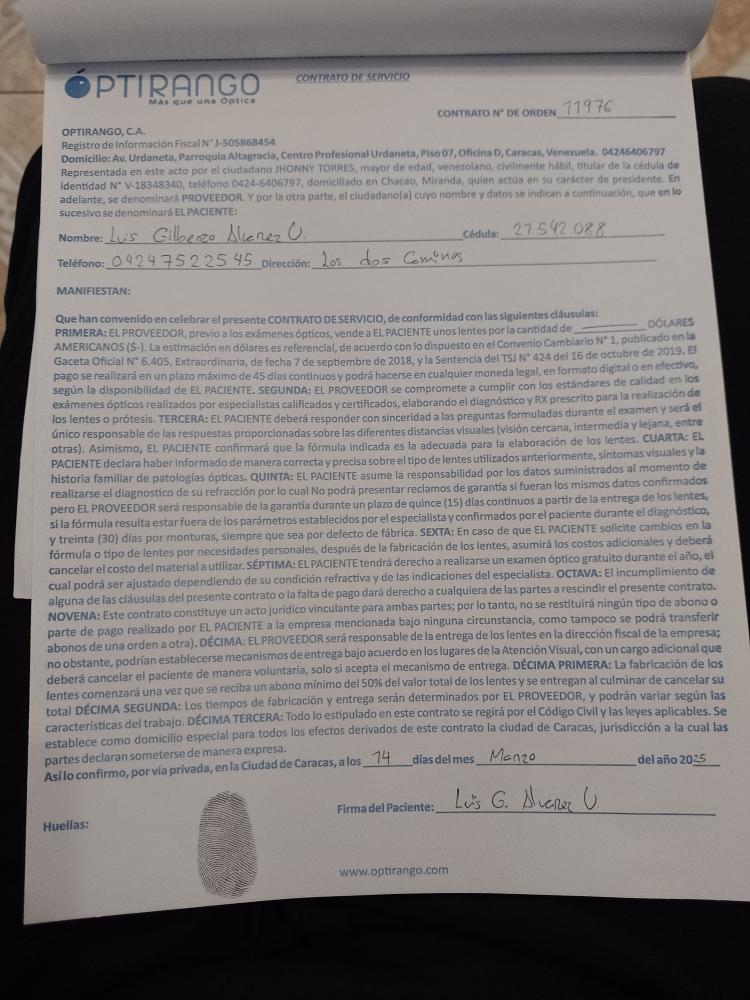 ÓPTIRANGO
Más que una Óptica
CONTRATO DE SERVICIO
CONTRATO N° DE ORDEN 11976
OPTIRANGO, C.A.
Registro de Información Fiscal N° J-505868454
Domicilio: Av. Urdaneta, Parroquia Altagracia, Centro Profesional Urdaneta, Piso 07, Oficina D, Caracas, Venezuela. 04246406797
Representada en este acto por el ciudadano JHONNY TORRES, mayor de edad, venezolano, civilmente hábil, titular de la cédula de
identidad N° V-18348340, teléfono 0424-6406797, domiciliado en Chacao, Miranda, quien actúa en su carácter de presidente. En
adelante, se denominará PROVEEDOR. Y por la otra parte, el ciudadano(a) cuyo nombre y datos se indican a continuación, que en lo
sucesivo se denominará EL PACIENTE:
Nombre: Luis Gilberzo Alvarez U. Cédula: 27.542.088
Teléfono: 04247522545 Dirección: Los dos Caminos
MANIFIESTAN:
Que han convenido en celebrar el presente CONTRATO DE SERVICIO, de conformidad con las siguientes cláusulas:
PRIMERA: EL PROVEEDOR, previo a los exámenes ópticos, vende a EL PACIENTE unos lentes por la cantidad de ________ DÓLARES
AMERICANOS ($-). La estimación en dólares es referencial, de acuerdo con lo dispuesto en el Convenio Cambiario N° 1, publicado en la
Gaceta Oficial N° 6.405, Extraordinaria, de fecha 7 de septiembre de 2018, y la Sentencia del TSJ N° 424 del 16 de octubre de 2019. El
pago se realizará en un plazo máximo de 45 días continuos y podrá hacerse en cualquier moneda legal, en formato digital o en efectivo,
según la disponibilidad de EL PACIENTE. SEGUNDA: EL PROVEEDOR se compromete a cumplir con los estándares de calidad en los
exámenes ópticos realizados por especialistas calificados y certificados, elaborando el diagnóstico y RX prescrito para la realización de
los lentes o prótesis. TERCERA: EL PACIENTE deberá responder con sinceridad a las preguntas formuladas durante el examen y será el
único responsable de las respuestas proporcionadas sobre las diferentes distancias visuales (visión cercana, intermedia y lejana, entre
otras). Asimismo, EL PACIENTE confirmará que la fórmula indicada es la adecuada para la elaboración de los lentes. CUARTA: EL
PACIENTE declara haber informado de manera correcta y precisa sobre el tipo de lentes utilizados anteriormente, síntomas visuales y la
historia familiar de patologías ópticas. QUINTA: EL PACIENTE asume la responsabilidad por los datos suministrados al momento de
realizarse el diagnostico de su refracción por lo cual No podrá presentar reclamos de garantía si fueran los mismos datos confirmados
pero EL PROVEEDOR será responsable de la garantía durante un plazo de quince (15) días continuos a partir de la entrega de los lentes,
si la fórmula resulta estar fuera de los parámetros establecidos por el especialista y confirmados por el paciente durante el diagnóstico,
y treinta (30) días por monturas, siempre que sea por defecto de fábrica. SEXTA: En caso de que EL PACIENTE solicite cambios en la
fórmula o tipo de lentes por necesidades personales, después de la fabricación de los lentes, asumirá los costos adicionales y deberá
cancelar el costo del material a utilizar. SÉPTIMA: EL PACIENTE tendrá derecho a realizarse un examen óptico gratuito durante el año, el
cual podrá ser ajustado dependiendo de su condición refractiva y de las indicaciones del especialista. OCTAVA: El incumplimiento de
alguna de las cláusulas del presente contrato o la falta de pago dará derecho a cualquiera de las partes a rescindir el presente contrato.
NOVENA: Este contrato constituye un acto jurídico vinculante para ambas partes; por lo tanto, no se restituirá ningún tipo de abono o
parte de pago realizado por EL PACIENTE a la empresa mencionada bajo ninguna circunstancia, como tampoco se podrá transferir
abonos de una orden a otra). DÉCIMA: EL PROVEEDOR será responsable de la entrega de los lentes en la dirección fiscal de la empresa;
no obstante, podrían establecerse mecanismos de entrega bajo acuerdo en los lugares de la Atención Visual, con un cargo adicional que
deberá cancelar el paciente de manera voluntaria, solo si acepta el mecanismo de entrega. DÉCIMA PRIMERA: La fabricación de los
lentes comenzará una vez que se reciba un abono mínimo del 50% del valor total de los lentes y se entregan al culminar de cancelar su
total DÉCIMA SEGUNDA: Los tiempos de fabricación y entrega serán determinados por EL PROVEEDOR, y podrán variar según las
características del trabajo. DÉCIMA TERCERA: Todo lo estipulado en este contrato se regirá por el Código Civil y las leyes aplicables. Se
establece como domicilio especial para todos los efectos derivados de este contrato la ciudad de Caracas, jurisdicción a la cual las
partes declaran someterse de manera expresa.
Así lo confirmo, por vía privada, en la Ciudad de Caracas, a los 14 días del mes Marzo del año 2025
Firma del Paciente: Luis G. Alvarez U.
Huellas:
www.optirango.com